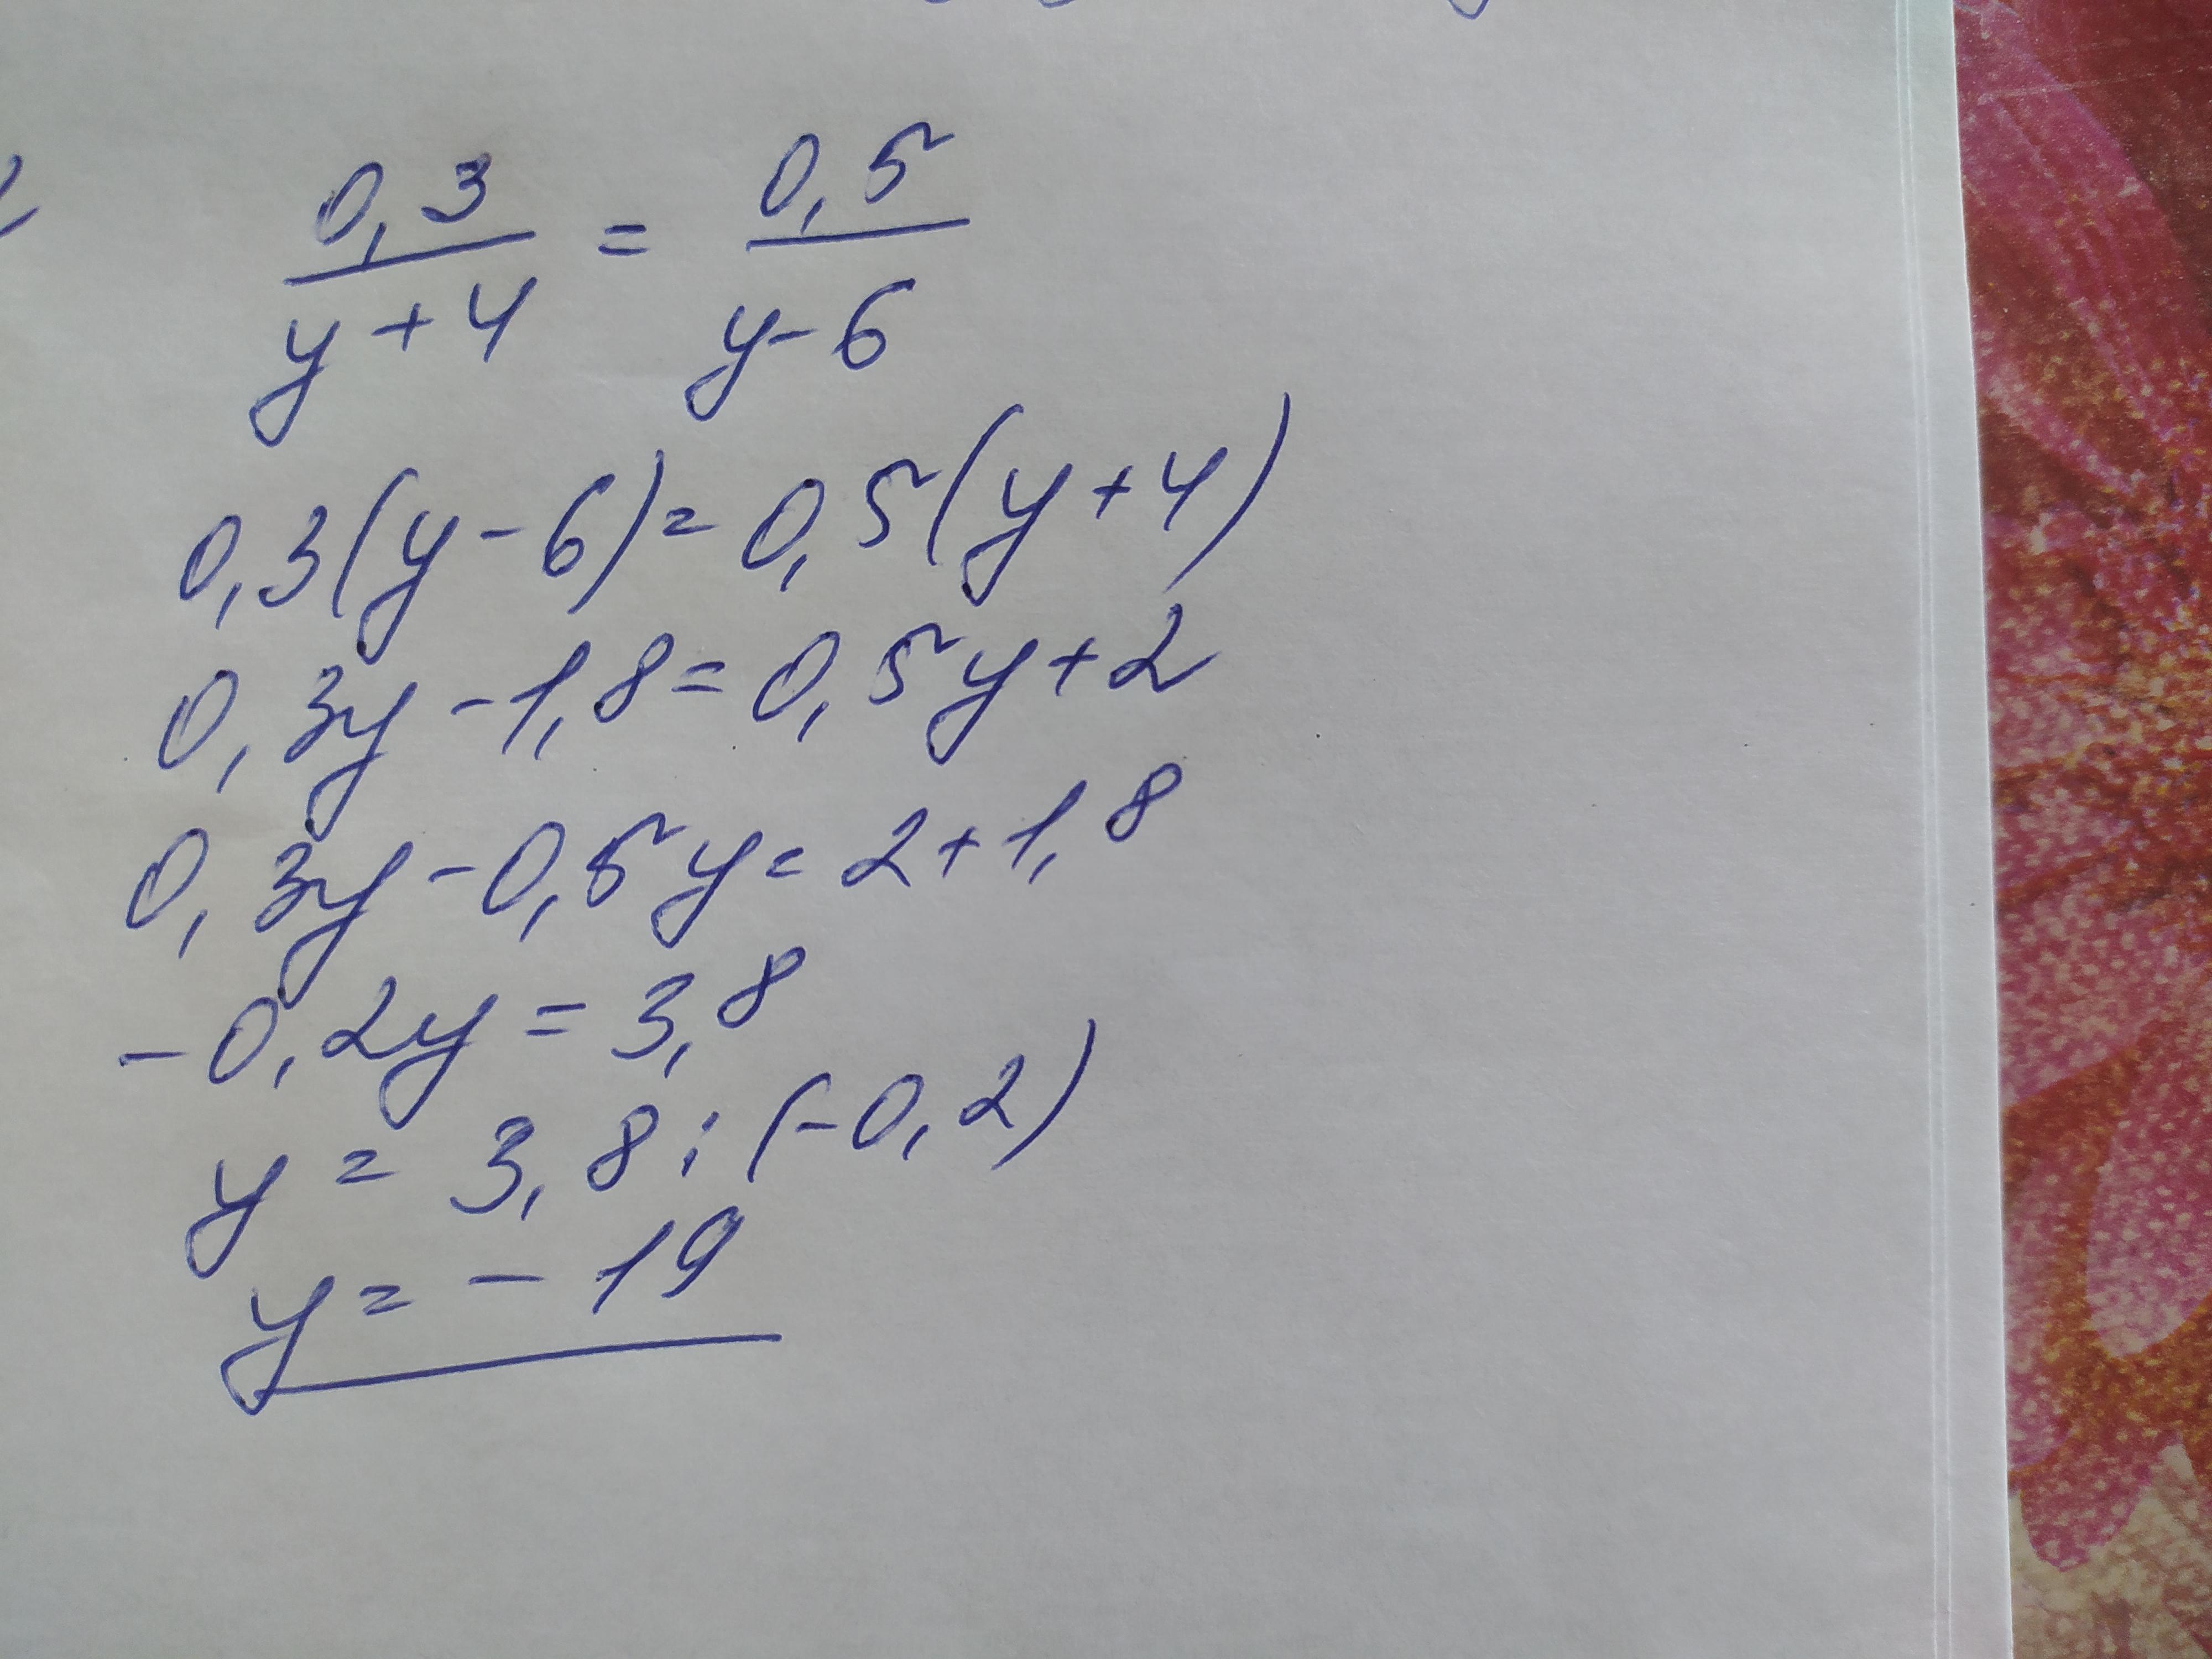 0,3/y+4 = 0,5/y-6
0,3(y-6)=0,5(y+4)
0,3y-1,8=0,5y+2
0,3y-0,5y=2+1,8
-0,2y=3,8
y=3,8:(-0,2)
y=-19